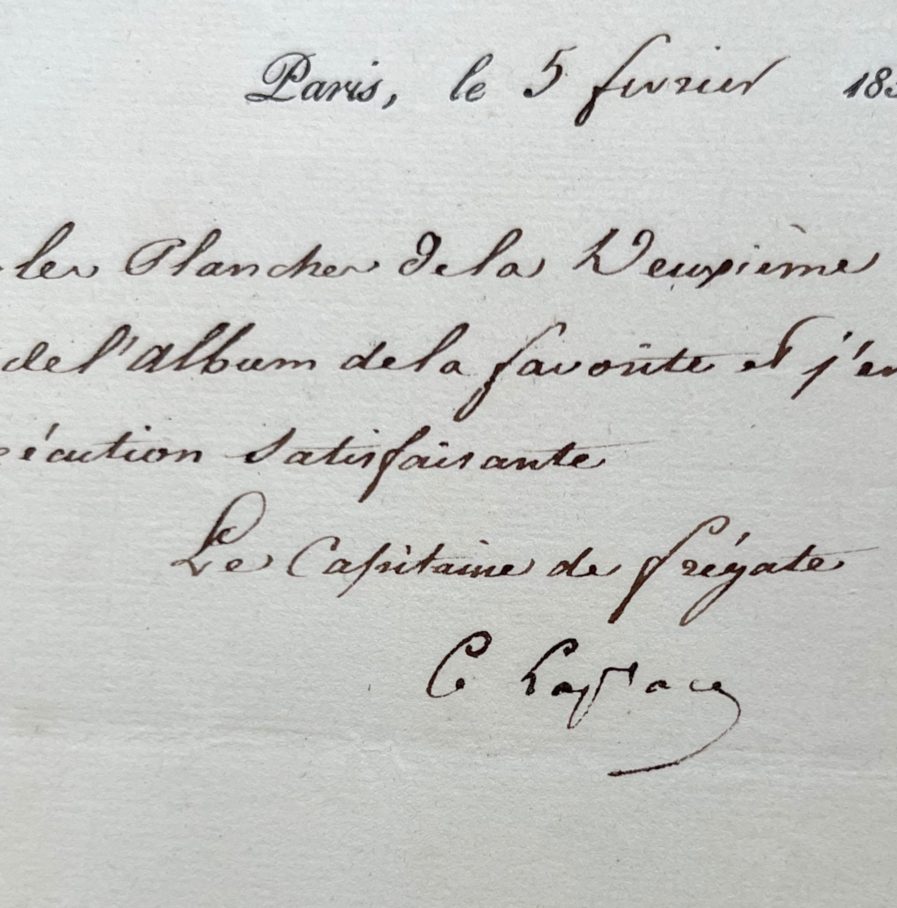 Paris, le 5 fevrier 183
les Planches de la Deuxième
de l'album de la favorite et j'en
écution satisfaisante
Le Capitaine de frégate
C Laplace